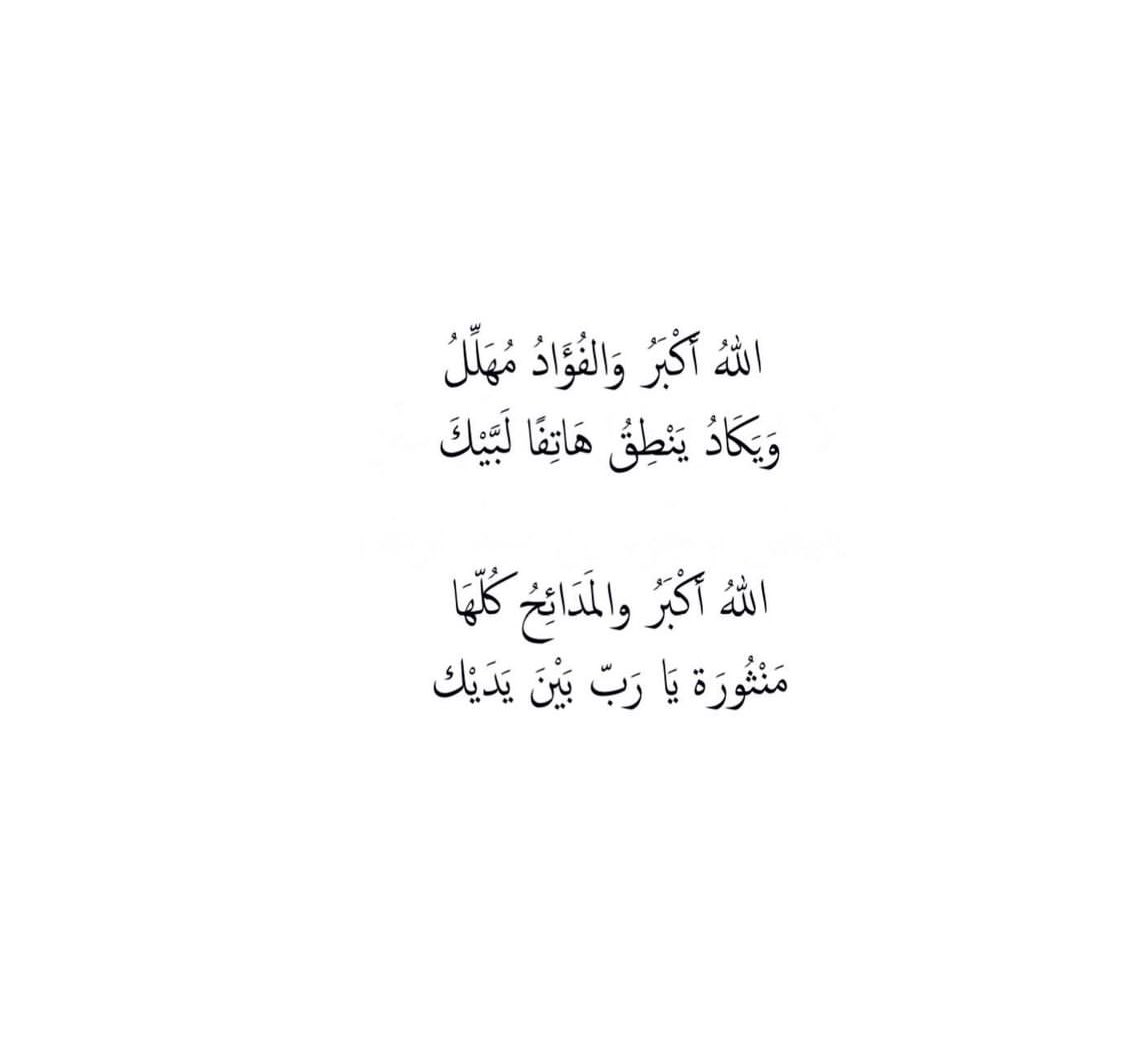 اللهُ أَكْبَرُ وَالفُؤَادُ مُهَلِّلُ
وَيَكَادُ يَنْطِقُ هَاتِفًا لَبَّيْكَ
اللهُ أَكْبَرُ والمَدَائِحُ كُلّهَا
مَنْثُورَة يَا رَبّ بَيْنَ يَدَيْك